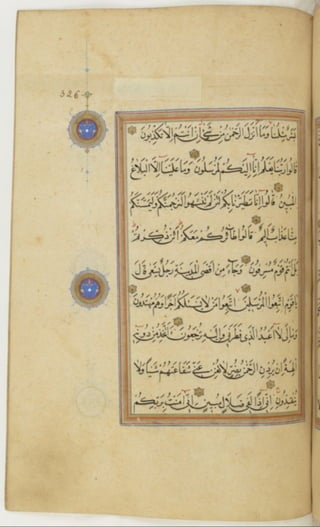 326
بشر مثلنا وما انزل الرحمن من شئ ان انتم الا تكذبون
قالوا ربنا يعلم انا اليكم لمرسلون وما علينا الا البلاغ
المبين قالوا انا تطيرنا بكم لئن لم تنتهوا لنرجمنكم وليمسنكم
منا عذاب اليم قالوا طائركم معكم ائن ذكرتم
بل انتم قوم مسرفون وجاء من اقصى المدينة رجل يسعى قال
يا قوم اتبعوا المرسلين اتبعوا من لا يسئلكم اجرا وهم مهتدون
ومالى لا اعبد الذى فطرنى واليه ترجعون ءاتخذ من دونه
الهة ان يردن الرحمن بضر لا تغن عنى شفاعتهم شيئا ولا
ينقذون انى اذا لفى ضلال مبين انى امنت بربكم